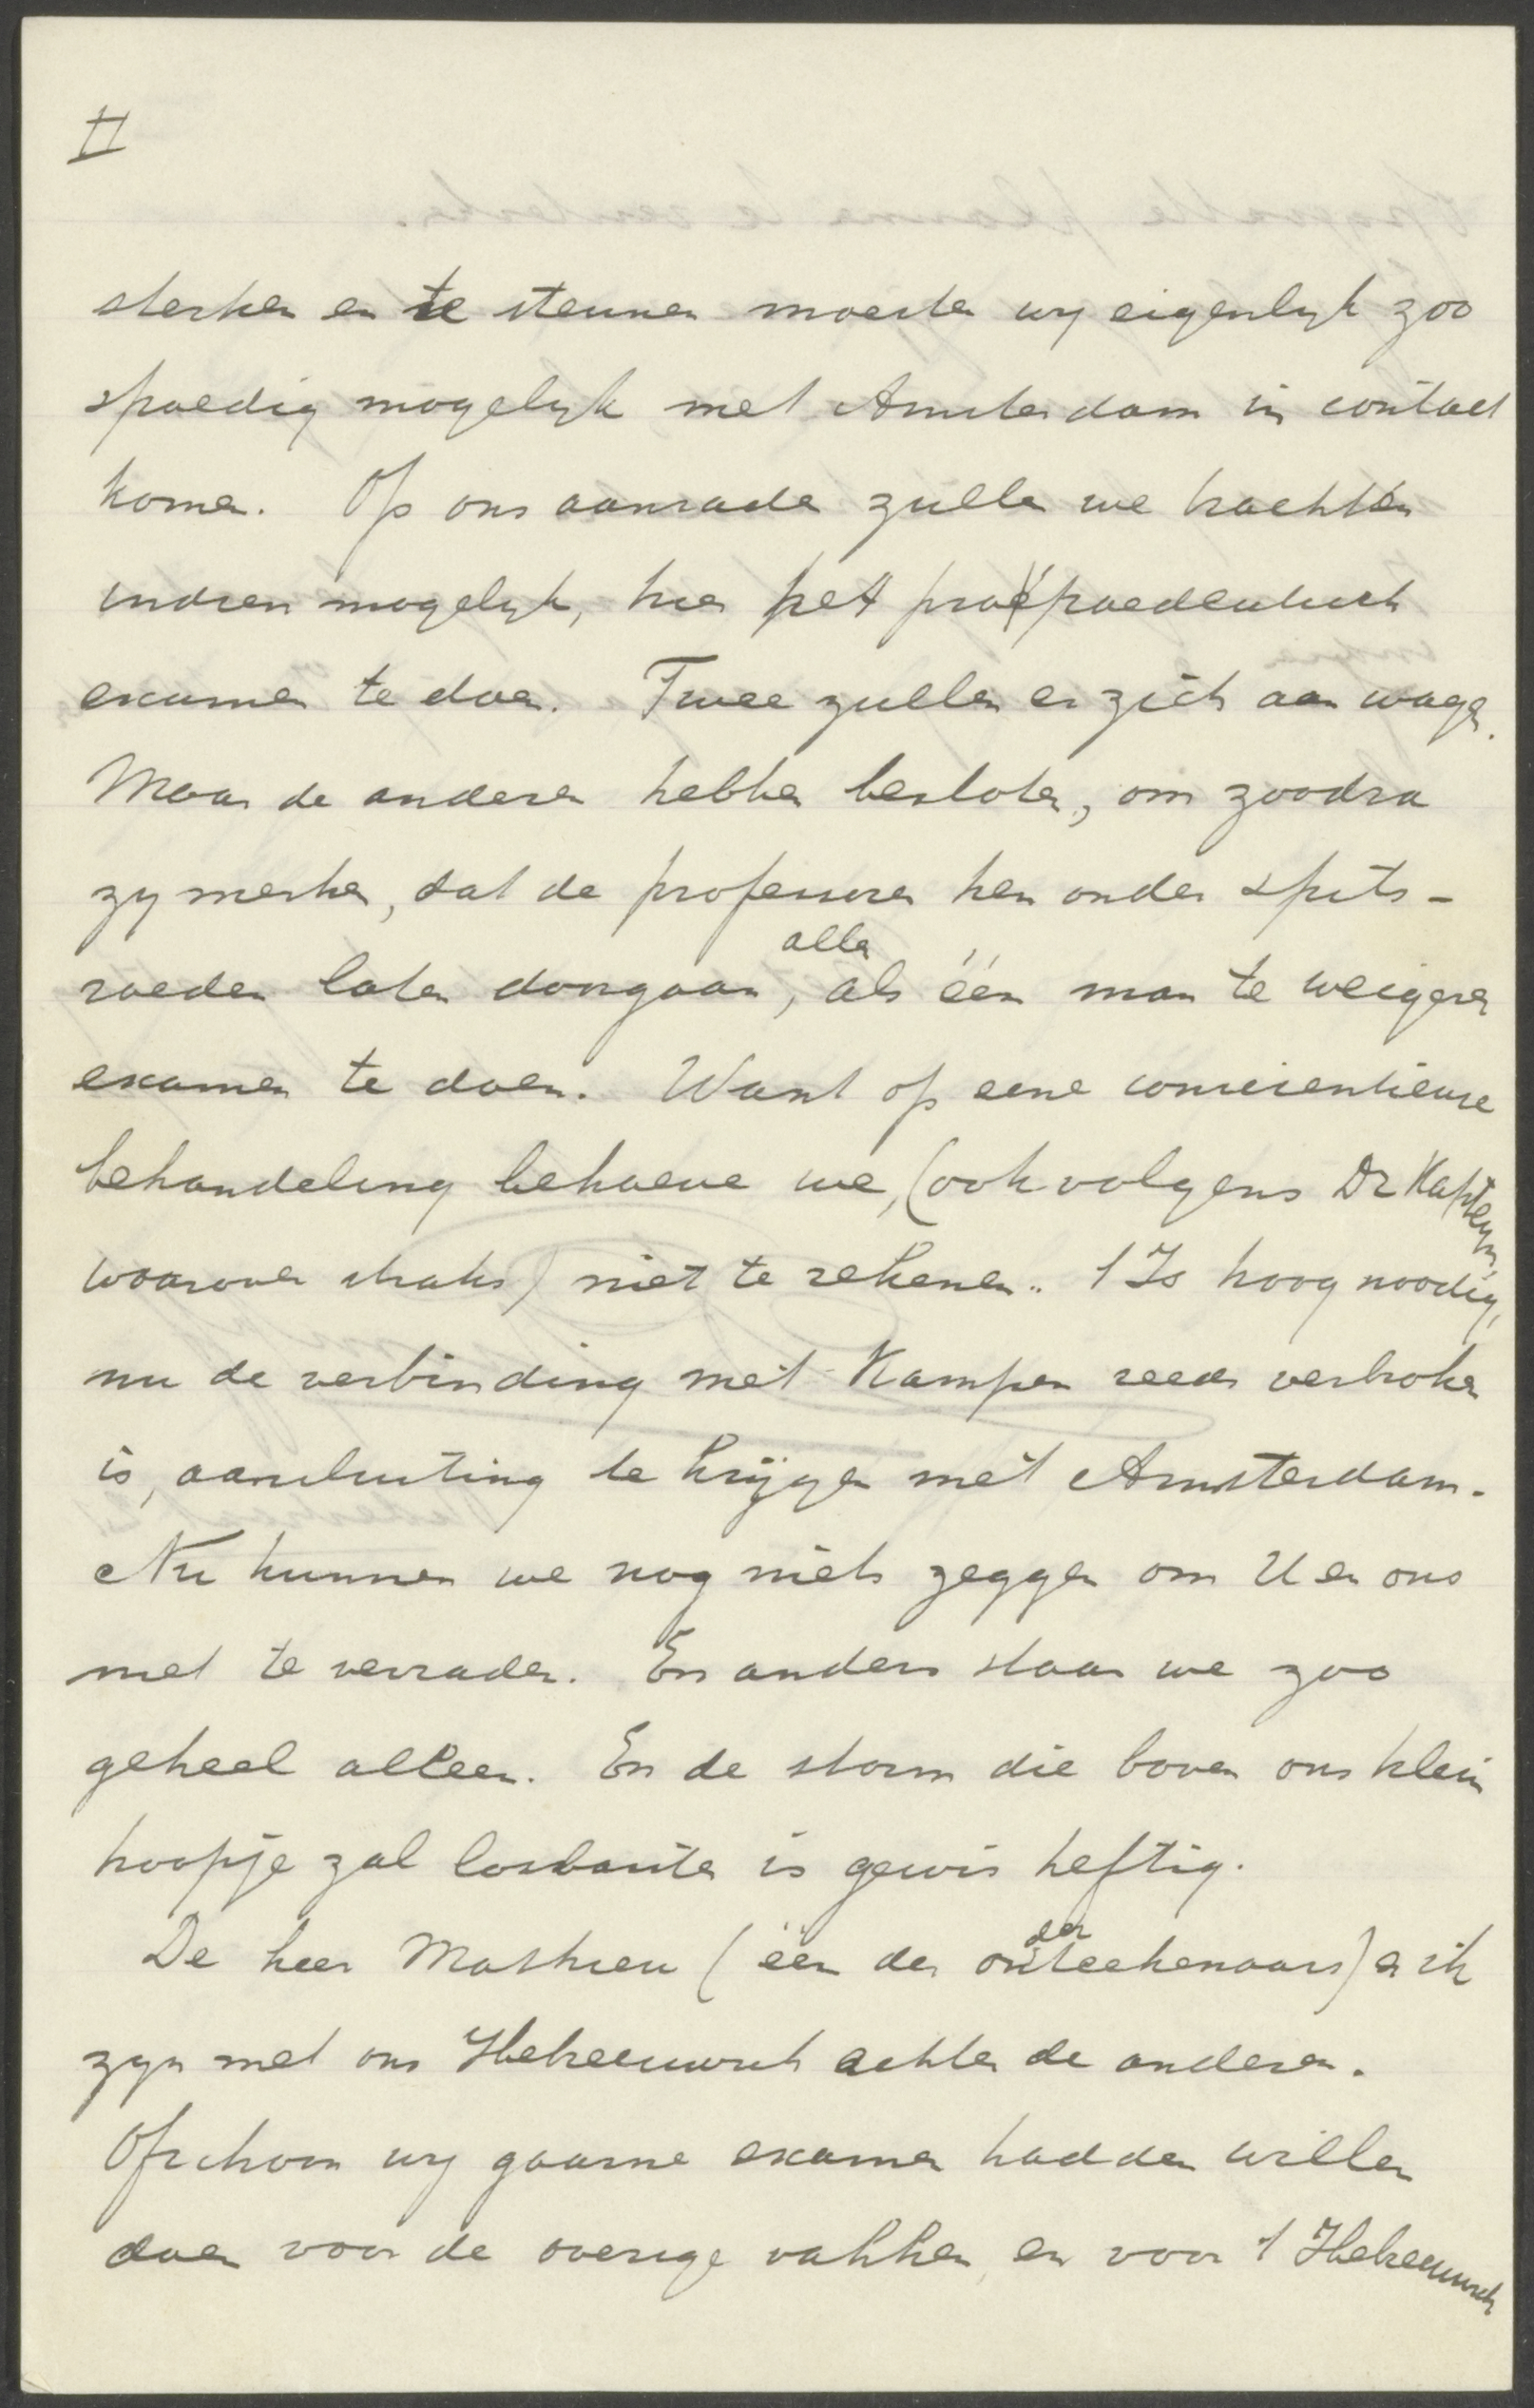 II
sterken en te steunen moesten wij eigenlijk zoo
spoedig mogelijk met Amsterdam in contact
komen. Op ons aanraden zullen we trachten
indien mogelijk, hier het propaedeutisch
examen te doen. Twee zullen er zich aan wagen.
Maar de anderen hebben besloten, om zoodra
zij merken, dat de professoren hen onder spits-
roeden laten doorgaan, allen als één man te weigeren
examen te doen. Want op eene conscientieuse
behandeling behoeven we, (ook volgens Dr Kapteyn,
waarover straks) niet te rekenen. 't Is hoog noodig,
nu de verbinding met Kampen reeds verbroken
is, aansluiting te krijgen met Amsterdam.
Nu kunnen we nog niets zeggen om U en ons
niet te verraden. En anders staan we zoo
geheel alleen. En de storm die boven ons klein
hoopje zal losbarsten is gewis heftig.
De heer Mathieu (één der onderteekenaars) en ik
zijn met ons Hebreeuwsch achter de anderen.
Ofschoon wij gaarne examen hadden willen
doen voor de overige vakken en voor 't Hebreeuwsch